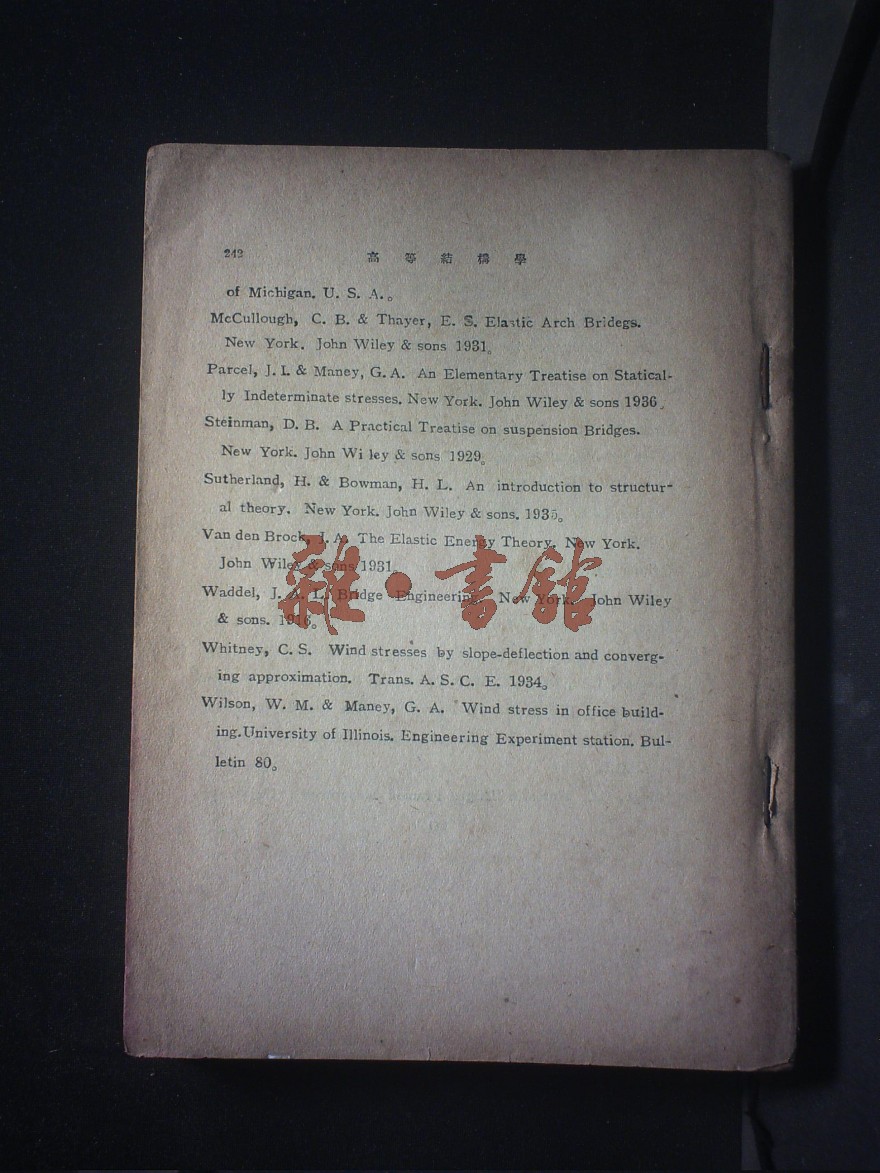 242
高等結構學
of Michigan. U. S. A.。
McCullough, C. B. & Thayer, E. S. Elastic Arch Bridegs.
New York. John Wiley & sons 1931。
Parcel, J. I. & Maney, G. A. An Elementary Treatise on Statical-
ly Indeterminate stresses. New York. John Wiley & sons 1936。
Steinman, D. B. A Practical Treatise on suspension Bridges.
New York. John Wi ley & sons 1929。
Sutherland, H. & Bowman, H. L. An introduction to structur-
al theory. New York. John Wiley & sons. 1935。
Van den Brock, J. A. The Elastic Energy Theory. New York.
John Wiley & sons 1931。
Waddel, J. A. L. Bridge Engineering. New York. John Wiley
& sons. 1916。
Whitney, C. S. Wind stresses by slope-deflection and converg-
ing approximation. Trans. A. S. C. E. 1934。
Wilson, W. M. & Maney, G. A. Wind stress in office build-
ing. University of Illinois. Engineering Experiment station. Bul-
letin 80。
雜·書館